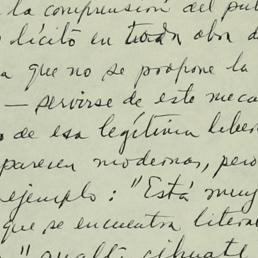 la comprensión del pu
lícito en toda obra d
a que no se propone la
— servirse de este meca
de esa legítima liber
parecen modernas, pero
ejemplo: "Está muy
que se encuentra literal